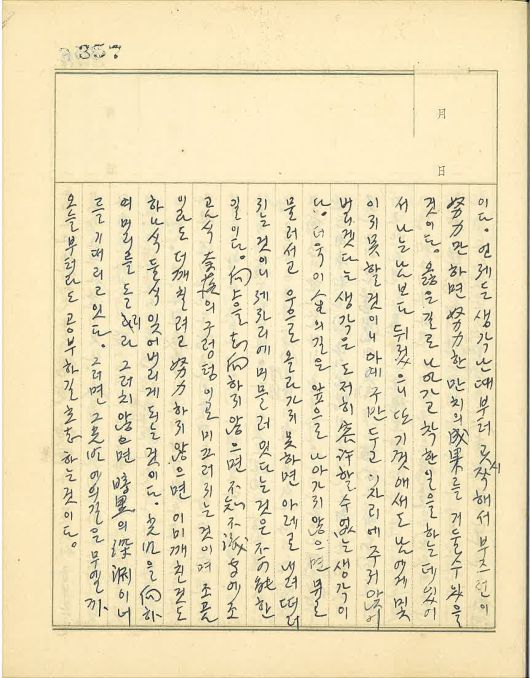 357
月
日
이다. 언제든 생각난 때부터 시작해서 부즈런이
努力만 하면 努力한 만치의 成果를 거둘수 있을
것이다. 옳은 길로 나아가고 착한 일을 하는데 있어
서 나는 남보다 뒤젔으니 또 기껏 애써도 남에게 및
이지 못할 것이니 아예 구만두고 이 자리에 주저 앉어
버리겠다는 생각은 도저히 容許할 수 없는 생각이
다. 더욱이 의 길은 앞으로 나아가지 않으면 뒤로
물러서고 우으로 올라가지 못하면 아레로 내려 떠러
지는 것이니 제자리에 머물러 있다는 것은 不可能한
일이다. 向上을 하지 않으면 不知不識 中에 조
곰식 의 구렁텅이로 미끄러지는 것이며 조곰
이라도 더 깨칠려고 努力하지 않으면 이미 깨친 것도
하나식 둘식 잊어버리게 되는 것이다. 을 向하
여 머리를 돌려라 그러치 않으면 暗黑의 深淵이 너
를 기대리고 있다. 그러면 의 길은 무엘까.
오늘부터라도 공부하길 하는 것이다.